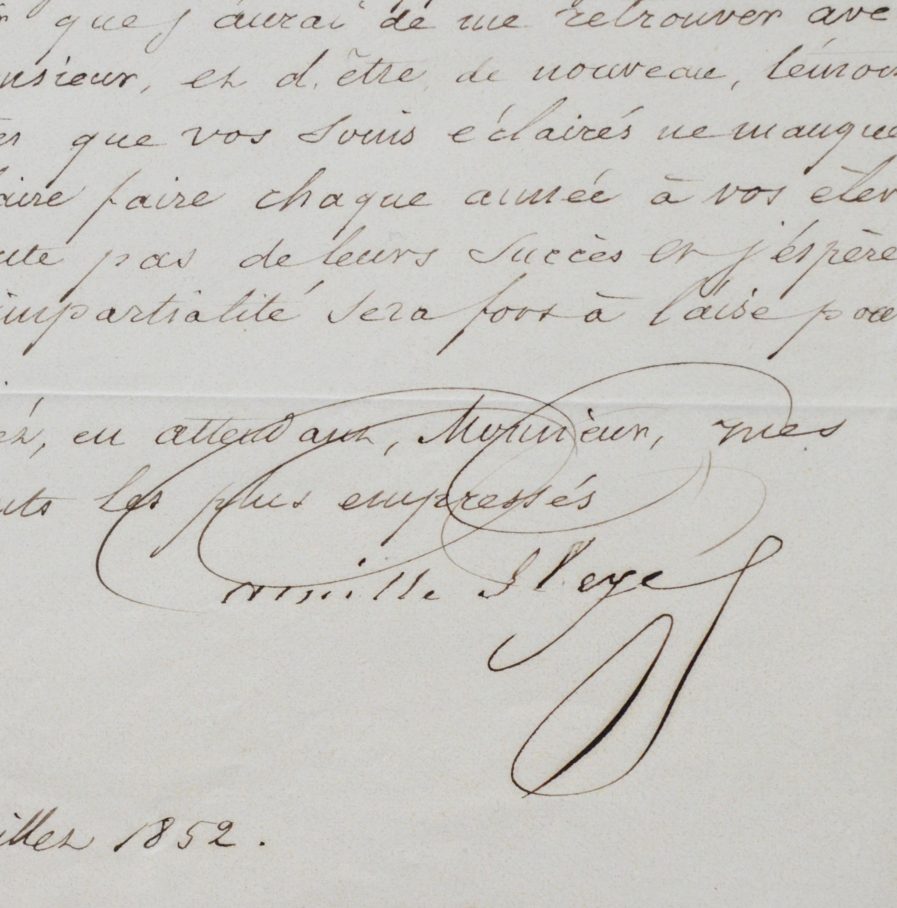 que j'aurai de me retrouver ave
nsieur, et d'être de nouveau, témoi
que vos soins éclairés ne manque
aire faire chaque année à vos élèv
ute pas de leurs succès et j'espère
impartialité sera fort à l'aise pou
ez, en attendant, Monsieur, mes
nts les plus empressés
Camille Pleyel
illet 1852.